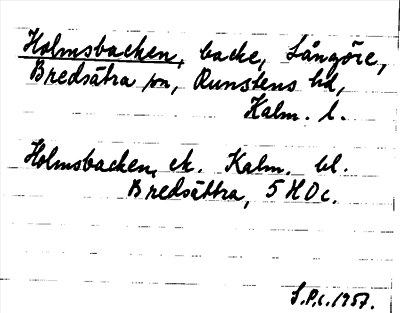 Holmsbacken, backe, Långöre,
Bredsätra sn, Runstens hd,
Kalm. l.
Holmsbacken, ek. Kalm. bl.
Bredsättra, 5 H D c.
S.P.c. 1957.